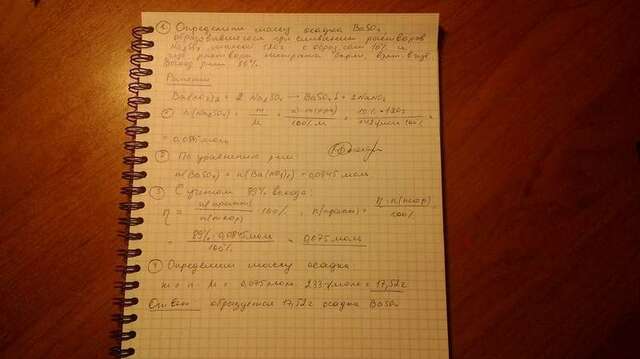 ① Определить массу осадка BaSO₄,
образовавшегося при сливании растворов
Na₂SO₄ массой 120г с образ. сол 10% и
раствора нитрата бария, взят. в изб.
Выход 89%
Решение
Ba(NO₃)₂ + 2 Na₂SO₄ → BaSO₄↓ + 2NaNO₃
① n(Na₂SO₄) = m/M = ω·m(р-ра)/100%·M = 10%·120г/142г/моль·100% =
= 0,0845 моль
② По уравнению р-ии
n(BaSO₄) = n(Ba(NO₃)₂) = 0,0845 моль
③ С учетом 89% выхода:
η = n(практ)/n(теор) · 100%, n(практ) = η·n(теор)/100% =
= 89%·0,0845моль/100% = 0,075 моль
④ Определим массу осадка
m = n · M = 0,075 моль · 233 г/моль = 17,52г
Ответ: образуется 17,52г осадка BaSO₄